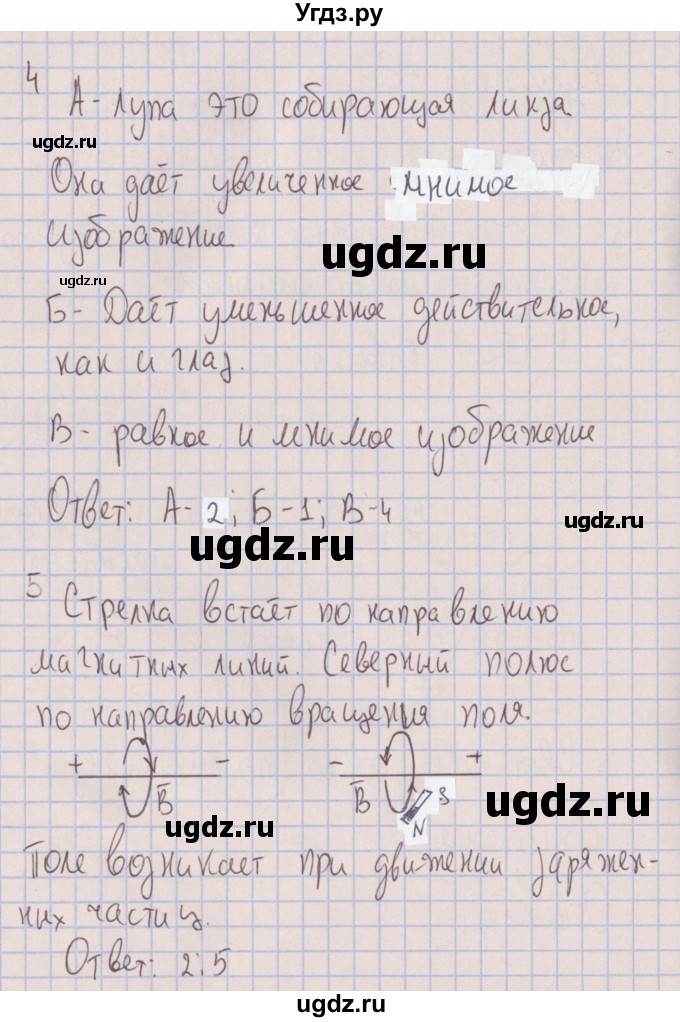 Угдз.ру
4
А - лупа это собирающая линза
ugdz.ru
Она даёт увеличенное мнимое
изображение
ugdz.ru
ugdz.ru
Б - Даёт уменьшенное действительное,
как и глаз.
В - равное и мнимое изображение
Ответ: А - 2; Б - 1; В - 4
ugdz.ru
ugdz.ru
5
Стрелка встаёт по направлению
магнитных линий. Северный полюс
по направлению вращения поля.
ugdz.ru
+ - - +
B B S
N
ugdz.ru
ugdz.ru
Поле возникает при движении заряжен-
ных частиц.
Ответ: 2; 5
ugdz.ru
ugdz.ru